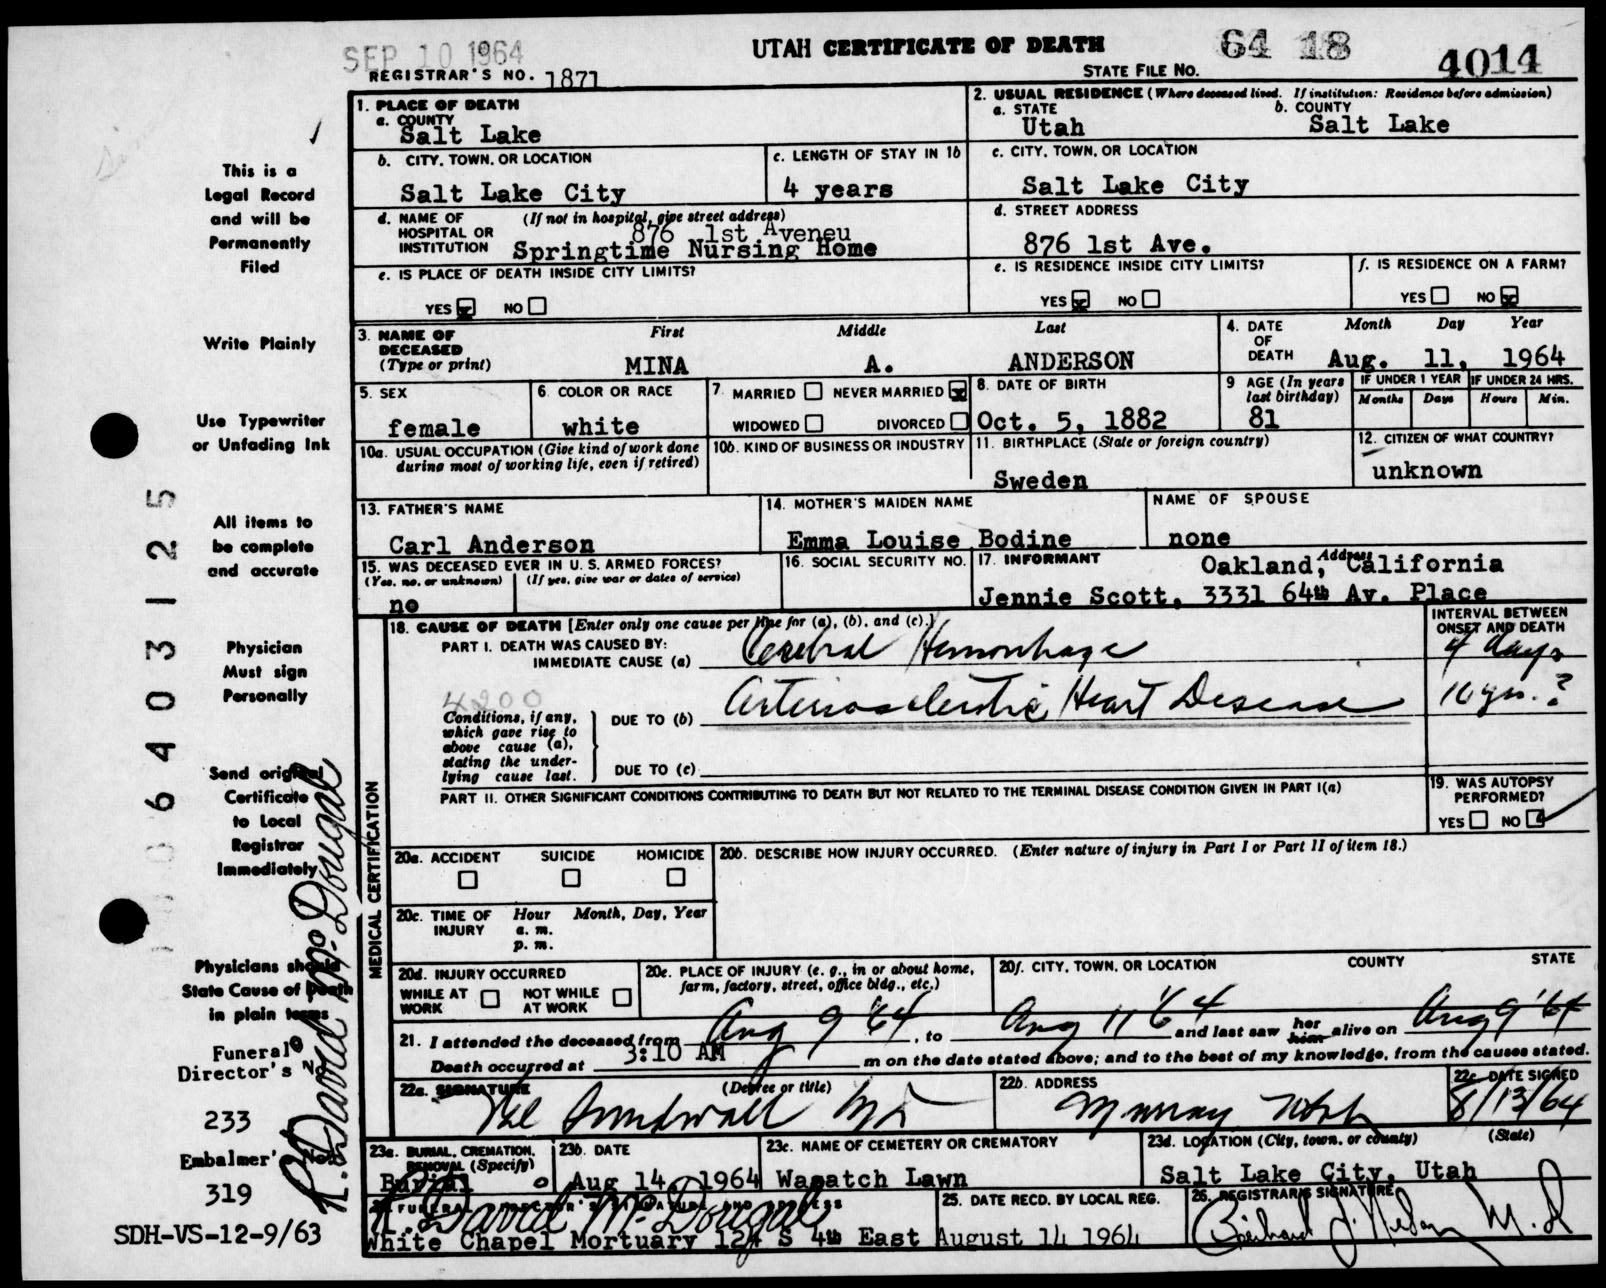 SEP 10 1964
UTAH CERTIFICATE OF DEATH
64 18 4014
REGISTRAR'S NO. 1871
STATE FILE NO.
This is a
Legal Record
and will be
Permanently
Filed
Write Plainly
Use Typewriter
or Unfading Ink
All items to
be complete
and accurate
Physician
Must sign
Personally
Send original
Certificate
to Local
Registrar
Immediately
Physicians should
State Cause of Death
in plain terms
Funeral
Director's No
233
Embalmer's No.
319
SDH-VS-12-9/63
06403125
R. David McDougal
1. PLACE OF DEATH
a. COUNTY
Salt Lake
2. USUAL RESIDENCE (Where deceased lived. If institution: Residence before admission)
a. STATE b. COUNTY
Utah Salt Lake
b. CITY, TOWN, OR LOCATION
Salt Lake City
c. LENGTH OF STAY IN 1b
4 years
c. CITY, TOWN, OR LOCATION
Salt Lake City
d. NAME OF HOSPITAL OR INSTITUTION (If not in hospital, give street address)
876 1st Aveneu
Springtime Nursing Home
d. STREET ADDRESS
876 1st Ave.
e. IS PLACE OF DEATH INSIDE CITY LIMITS?
YES x NO
e. IS RESIDENCE INSIDE CITY LIMITS?
YES x NO
f. IS RESIDENCE ON A FARM?
YES NO x
3. NAME OF DECEASED (Type or print)
First Middle Last
MINA A. ANDERSON
4. DATE OF DEATH
Month Day Year
Aug. 11, 1964
5. SEX
female
6. COLOR OR RACE
white
7. MARRIED NEVER MARRIED x
WIDOWED DIVORCED
8. DATE OF BIRTH
Oct. 5, 1882
9 AGE (In years last birthday)
81
IF UNDER 1 YEAR IF UNDER 24 HRS.
Months Days Hours Min.
10a. USUAL OCCUPATION (Give kind of work done during most of working life, even if retired)
10b. KIND OF BUSINESS OR INDUSTRY
11. BIRTHPLACE (State or foreign country)
Sweden
12. CITIZEN OF WHAT COUNTRY?
unknown
13. FATHER'S NAME
Carl Anderson
14. MOTHER'S MAIDEN NAME
Emma Louise Bodine
NAME OF SPOUSE
none
15. WAS DECEASED EVER IN U. S. ARMED FORCES?
(Yes, no, or unknown) (If yes, give war or dates of service)
no
16. SOCIAL SECURITY NO.
17. INFORMANT Address
Oakland, California
Jennie Scott, 3331 64th Av. Place
MEDICAL CERTIFICATION
18. CAUSE OF DEATH [Enter only one cause per line for (a), (b), and (c).]
INTERVAL BETWEEN ONSET AND DEATH
PART I. DEATH WAS CAUSED BY:
IMMEDIATE CAUSE (a) Cerebral Hemorrhage 4 days
4200
Conditions, if any, which gave rise to above cause (a), stating the underlying cause last.
DUE TO (b) Arteriosclerotic Heart Disease 10 yrs. ?
DUE TO (c)
PART II. OTHER SIGNIFICANT CONDITIONS CONTRIBUTING TO DEATH BUT NOT RELATED TO THE TERMINAL DISEASE CONDITION GIVEN IN PART I(a)
19. WAS AUTOPSY PERFORMED?
YES NO
20a. ACCIDENT SUICIDE HOMICIDE
20b. DESCRIBE HOW INJURY OCCURRED. (Enter nature of injury in Part I or Part II of item 18.)
20c. TIME OF INJURY Hour Month, Day, Year
a. m.
p. m.
20d. INJURY OCCURRED
WHILE AT WORK NOT WHILE AT WORK
20e. PLACE OF INJURY (e. g., in or about home, farm, factory, street, office bldg., etc.)
20f. CITY, TOWN, OR LOCATION COUNTY STATE
21. I attended the deceased from Aug 9 '64, to Aug 11 '64 and last saw her him alive on Aug 9 '64
Death occurred at 3:10 AM m on the date stated above; and to the best of my knowledge, from the causes stated.
22a. SIGNATURE (Degree or title)
Val Sundwall MD
22b. ADDRESS
Murray Utah
22c. DATE SIGNED
8/13/64
23a. BURIAL, CREMATION, REMOVAL (Specify)
Burial
23b. DATE
Aug 14, 1964
23c. NAME OF CEMETERY OR CREMATORY
Wasatch Lawn
23d. LOCATION (City, town, or county) (State)
Salt Lake City, Utah
24. FUNERAL DIRECTOR'S SIGNATURE AND ADDRESS
R. David McDougal
White Chapel Mortuary 124 S 4th East
25. DATE RECD. BY LOCAL REG.
August 14 1964
26. REGISTRAR'S SIGNATURE
M.D